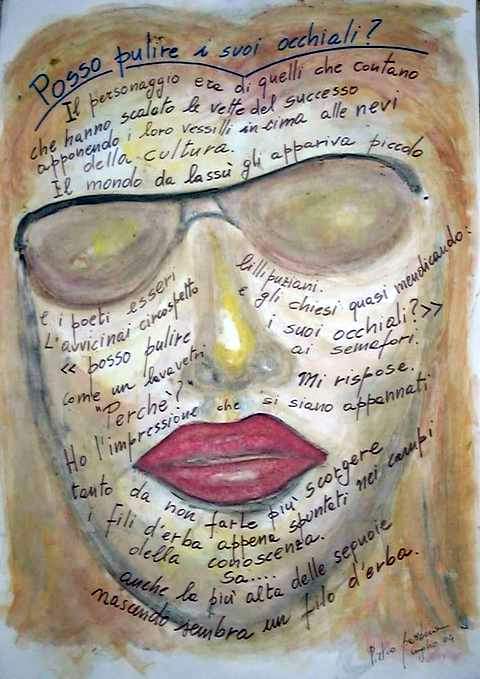 Posso pulire i suoi occhiali?
Il personaggio era di quelli che contano
che hanno scalato le vette del successo
apponendo i loro vessilli in cima alle nevi
della cultura.
Il mondo da lassù gli appariva piccolo
e i poeti esseri lillipuziani.
L'avvicinai circospetto e gli chiesi quasi mendicando:
<< posso pulire i suoi occhiali?>>
come un lavavetri ai semafori.
"Perchè?" Mi rispose.
Ho l'impressione che si siano appannati
tanto da non farle più scorgere
i fili d'erba appena spuntati nei campi
della conoscenza.
Sa....
anche la più alta delle sequoie
nascendo sembra un filo d'erba.